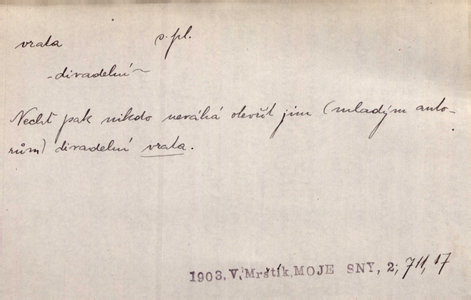 vrata s. pl.
- divadelní ~
Nechť pak nikdo neváhá otevřít jim (mladým auto-
rům) divadelní vrata.
1903, V. Mrštík, MOJE SNY, 2; 711, 17